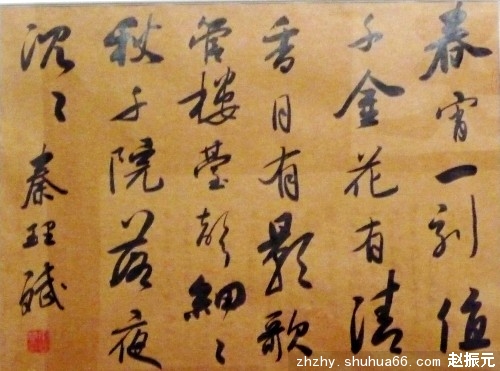 春宵一刻值
千金花有清
香月有影歌
管楼臺聲細〻
秋千院落夜
沉〻 秦理斌
zhzhy.shuhua66.com 赵振元